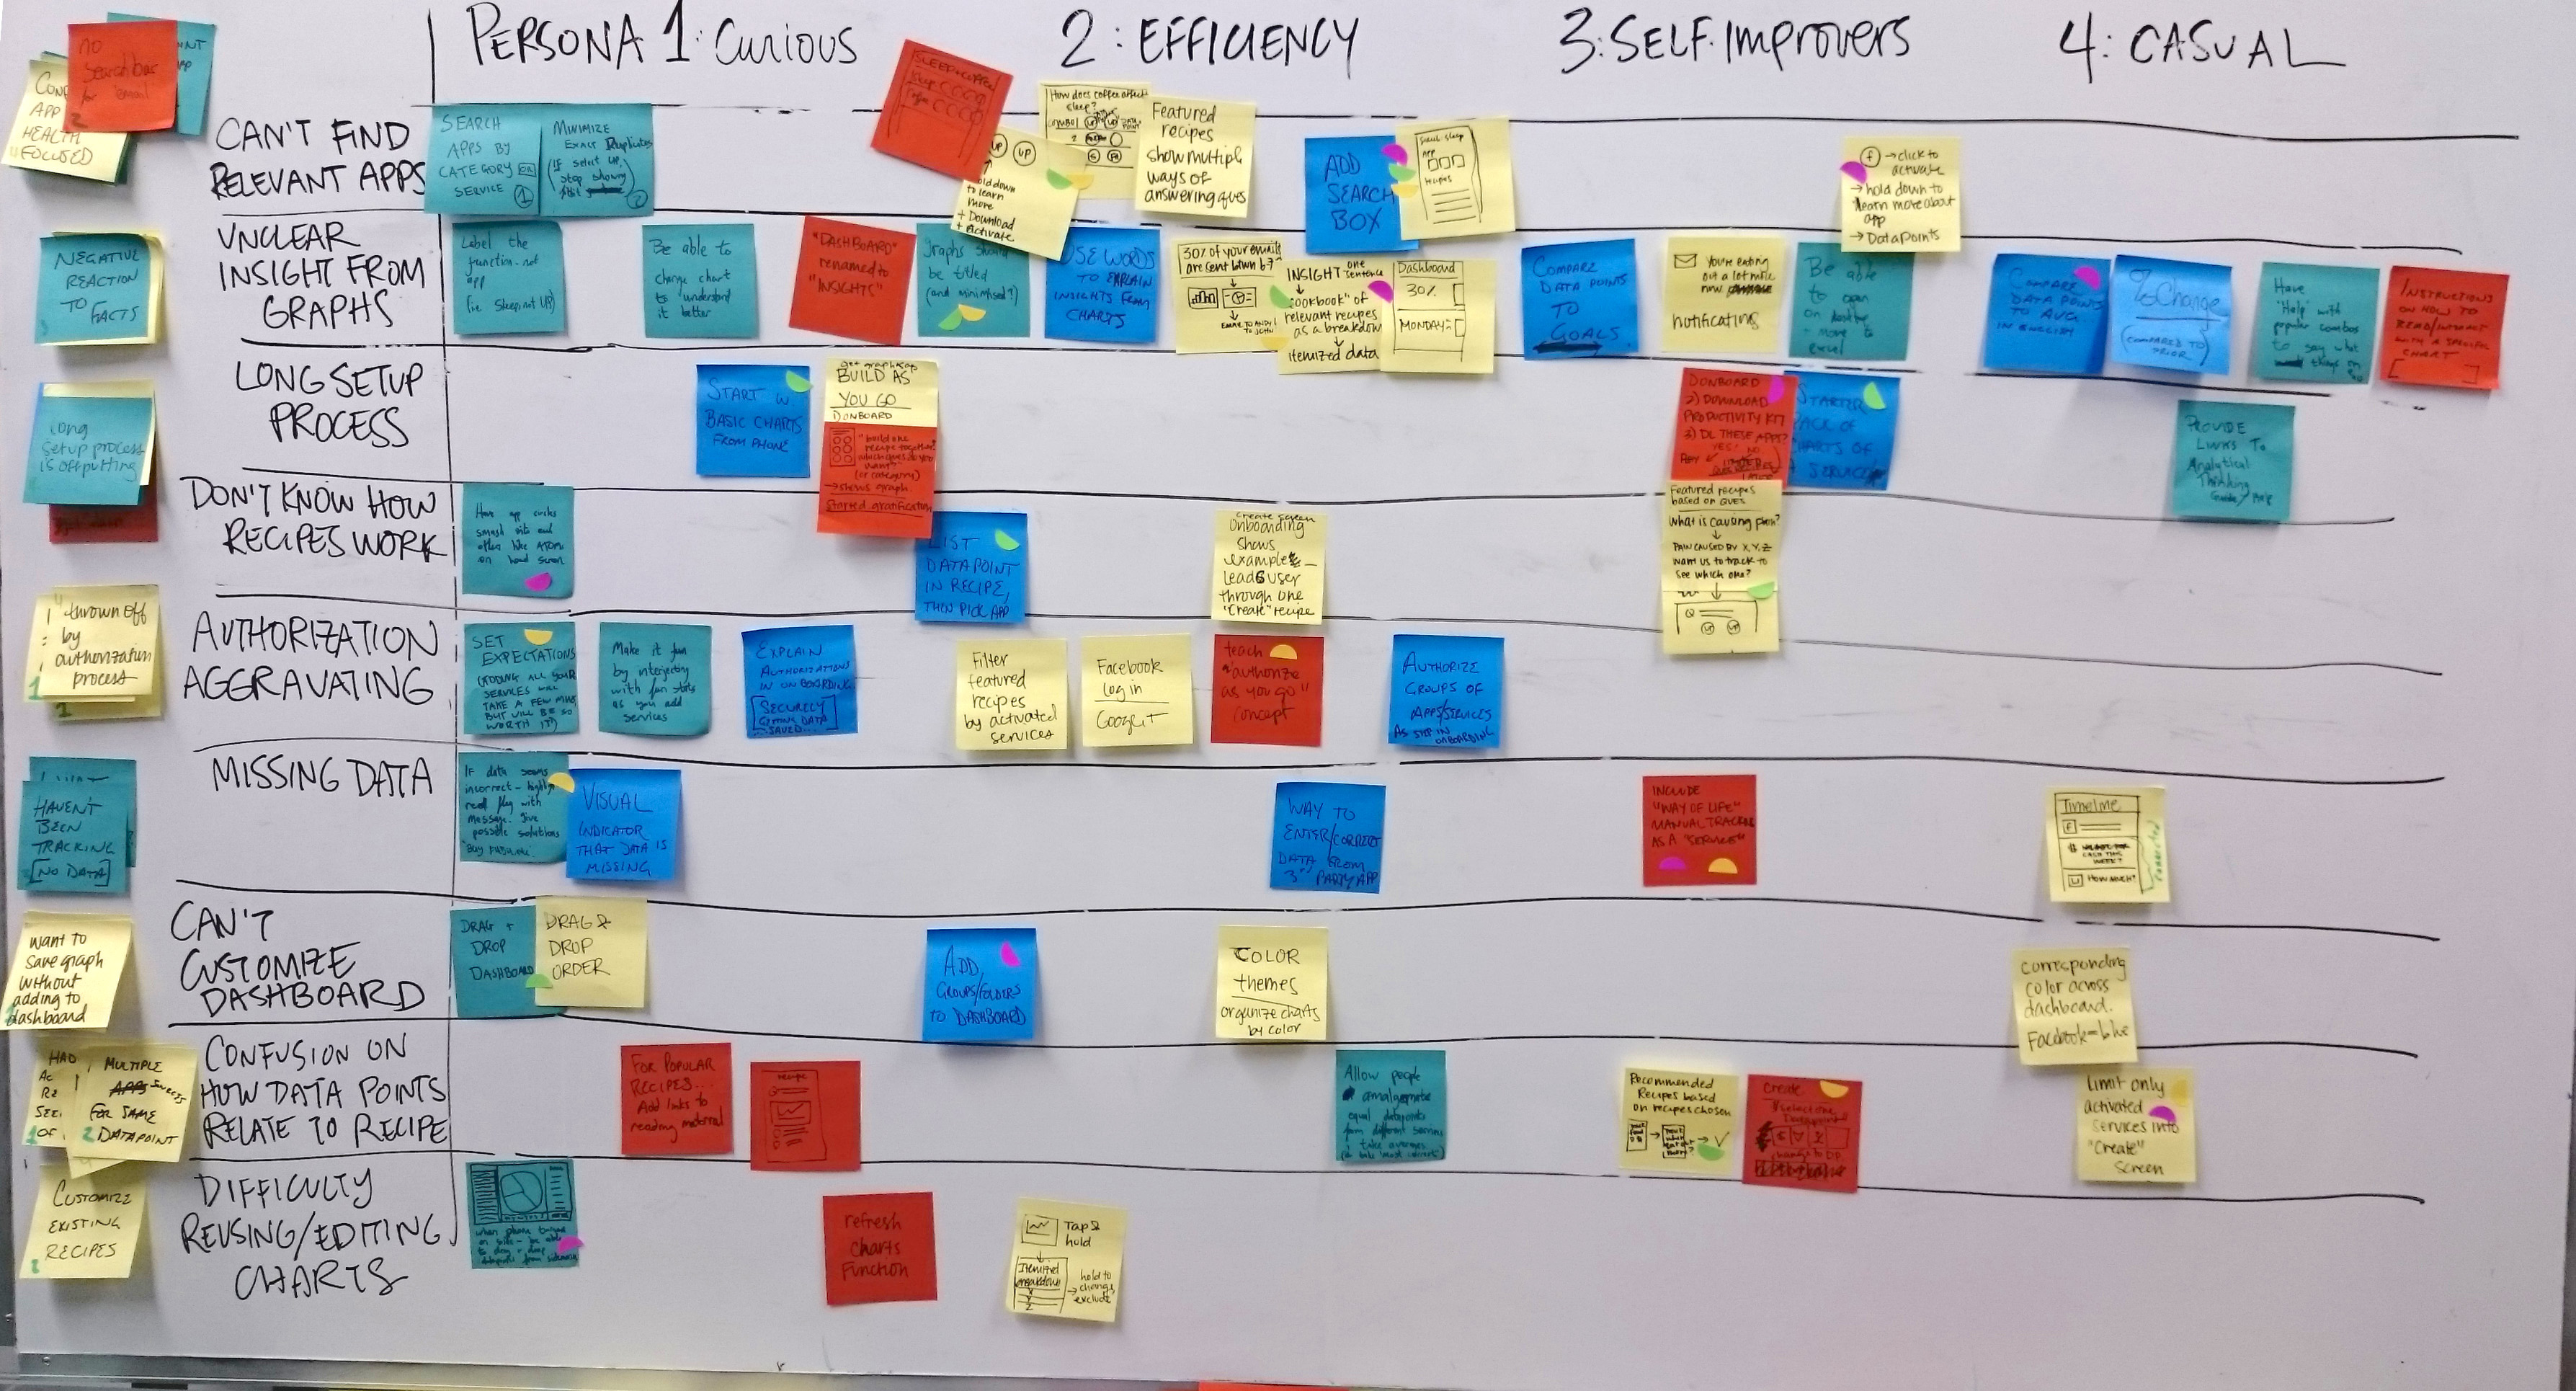 PERSONA 1: Curious
2: EFFICIENCY
3: SELF-Improvers
4: CASUAL
no
Search bar
for email
2
APP
HEALTH
FOCUSED
CAN'T FIND
RELEVANT APPS
SEARCH
APPS BY
CATEGORY OR
SERVICE 1
MINIMIZE
EXACT Duplicates
(if select UP,
stop showing
2
How does coffee affect
sleep?
UP
hold down
to learn
more
+ Download
+ Activate
Featured
recipes
show multiple
ways of
answering ques
ADD
SEARCH
BOX
f → click to
activate
→ hold down to
learn more about
app
→ Datapoints
NEGATIVE
REACTION
TO FACTS
UNCLEAR
INSIGHT FROM
GRAPHS
Label the
function - not
app
(i.e. Sleep not UP)
Be able to
change chart
to understand
it better
"DASHBOARD"
renamed to
"INSIGHTS"
graphs should
be titled
(and minimised?)
USE WORDS
TO EXPLAIN
INSIGHTS FROM
CHARTS
30% of your emails
are sent btwn 6-7
INSIGHT one
sentence
"cookbook" of
relevant recipes
as a breakdown
itemized data
Dashboard
30%
MONDAY=
COMPARE
DATA POINTS
TO
GOALS
You're eating
out a lot more
now
notification
Be able
to open
on desktop
- move to
excel
COMPARE
DATA POINTS
TO AVG
IN ENGLISH
% Change
(COMPARED TO
PRIOR)
Have
"Help" with
popular combos
to say what
things on
INSTRUCTIONS
ON HOW TO
READ/INTERACT
WITH A SPECIFIC
CHART
long
setup process
is offputting
LONG SETUP
PROCESS
START W
BASIC CHARTS
FROM PHONE
BUILD AS
YOU GO
ONBOARD
"build one
recipe together,
which ques do you
want"
(or category)
→ shows graph
started gratification
ONBOARD
2) DOWNLOAD
PRODUCTIVITY KIT
3) DL THESE APPS?
YES NO
STARTER
PACK OF
CHARTS OF
SERVICES
PROVIDE
LINKS TO
Analytical
Thinking
Guide/Help
DON'T KNOW HOW
RECIPES WORK
Have app circles
smash into each
other like ATOMS
on load screen
LIST
DATAPOINT
IN RECIPE,
THEN PICK APP
Create screen
Onboarding
shows
example -
leads user
through one
"Create" recipe
Featured recipes
based on QUES
What is causing pain?
PAIN CAUSED BY X, Y, Z
want us to track to
see which one?
thrown off
by
authorization
process
1
AUTHORIZATION
AGGRAVATING
SET
EXPECTATIONS
(ADDING ALL YOUR
SERVICES WILL
TAKE A FEW MINS
BUT WILL BE SO
WORTH IT!)
Make it fun
by interjecting
with fun stats
as you add
services
EXPLAIN
AUTHORIZATIONS
IN ONBOARDING.
SECURELY
GETTING DATA
SAVED...
Filter
featured
recipes
by activated
services
Facebook
log in
Google+
teach
"authorize
as you go"
concept
AUTHORIZE
GROUPS OF
APPS/SERVICES
AS STEP IN
ONBOARDING
HAVEN'T
BEEN
TRACKING
[NO DATA]
MISSING DATA
If data seems
incorrect - highlight
red flag with
message. Give
possible solutions
VISUAL
INDICATOR
THAT DATA IS
MISSING
WAY TO
ENTER/CORRECT
DATA FROM
3RD PARTY APP
INCLUDE
"WAY OF LIFE"
MANUAL TRACKING
AS A "SERVICE"
Timeline
CASH THIS
WEEK?
HOW MUCH?
want to
save graph
without
adding to
dashboard
CAN'T
CUSTOMIZE
DASHBOARD
DRAG +
DROP
DASHBOARD
DRAG &
DROP
ORDER
ADD
GROUPS/FOLDERS
TO DASHBOARD
COLOR
themes
organize charts
by color
corresponding
color across
dashboard.
Facebook=blue
HAD
MULTIPLE
FOR SAME
2 DATAPOINT
CONFUSION ON
HOW DATA POINTS
RELATE TO RECIPE
FOR POPULAR
RECIPES...
Add links to
reading material
recipe
Allow people
to amalgamate
equal datapoints
from different services
(& take averages
Recommended
Recipes based
on recipes chosen
create
limit only
activated
services into
"Create"
screen
CUSTOMIZE
EXISTING
RECIPES
DIFFICULTY
REUSING/EDITING
CHARTS
when phone turned
on side - be able
to drag + drop
datapoints from
refresh
charts
function
Tap &
hold
Itemized
breakdown
X
Y
Z
→ hold to
change
exclude